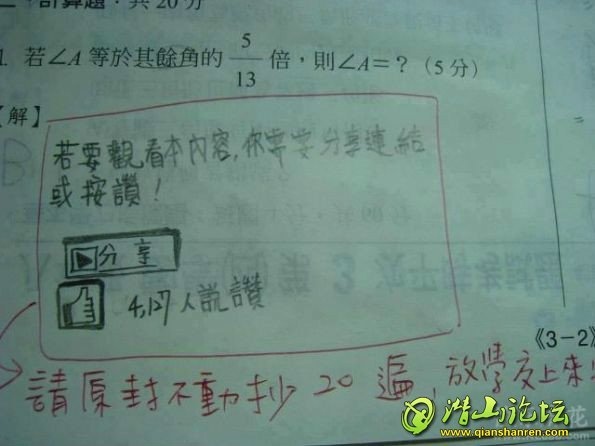 二、計算題：共20分
1. 若∠A 等於其餘角的 5/13 倍，則∠A＝？（5 分）
【解】
若要觀看本內容,你需要分享連結
或按讚!
分享
4,127人說讚
《3－2》
請原封不動抄20遍,放學交上來
潜山论坛
www.qianshanren.com